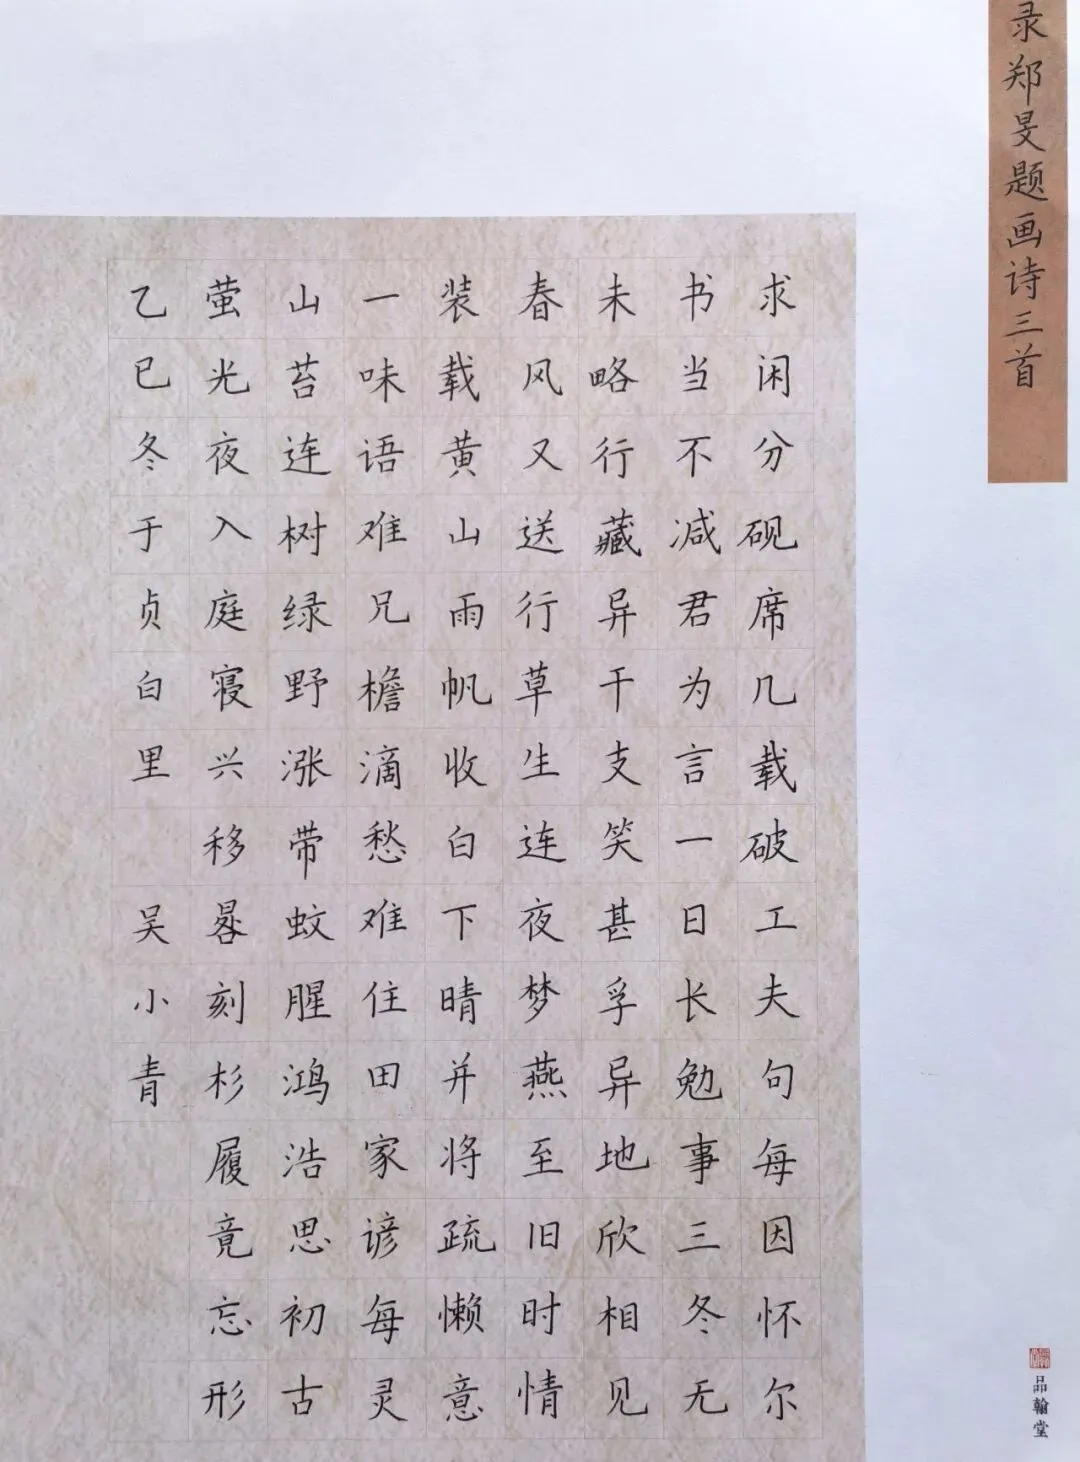 录郑旻题画诗三首
求闲分砚席几载破工夫句每因怀尔
书当不减君为言一日长勉事三冬无
未略行藏异干支笑甚孚异地欣相见
春风又送行草生连夜梦燕至旧时情
装载黄山雨帆收白下晴并将疏懒意
一味语难兄檐滴愁难住田家谚每灵
山苔连树绿野涨带蚊腥鸿浩思初古
萤光夜入庭寝兴移晷刻杉履竟忘形
乙巳冬于贞白里 吴小青
品翰堂